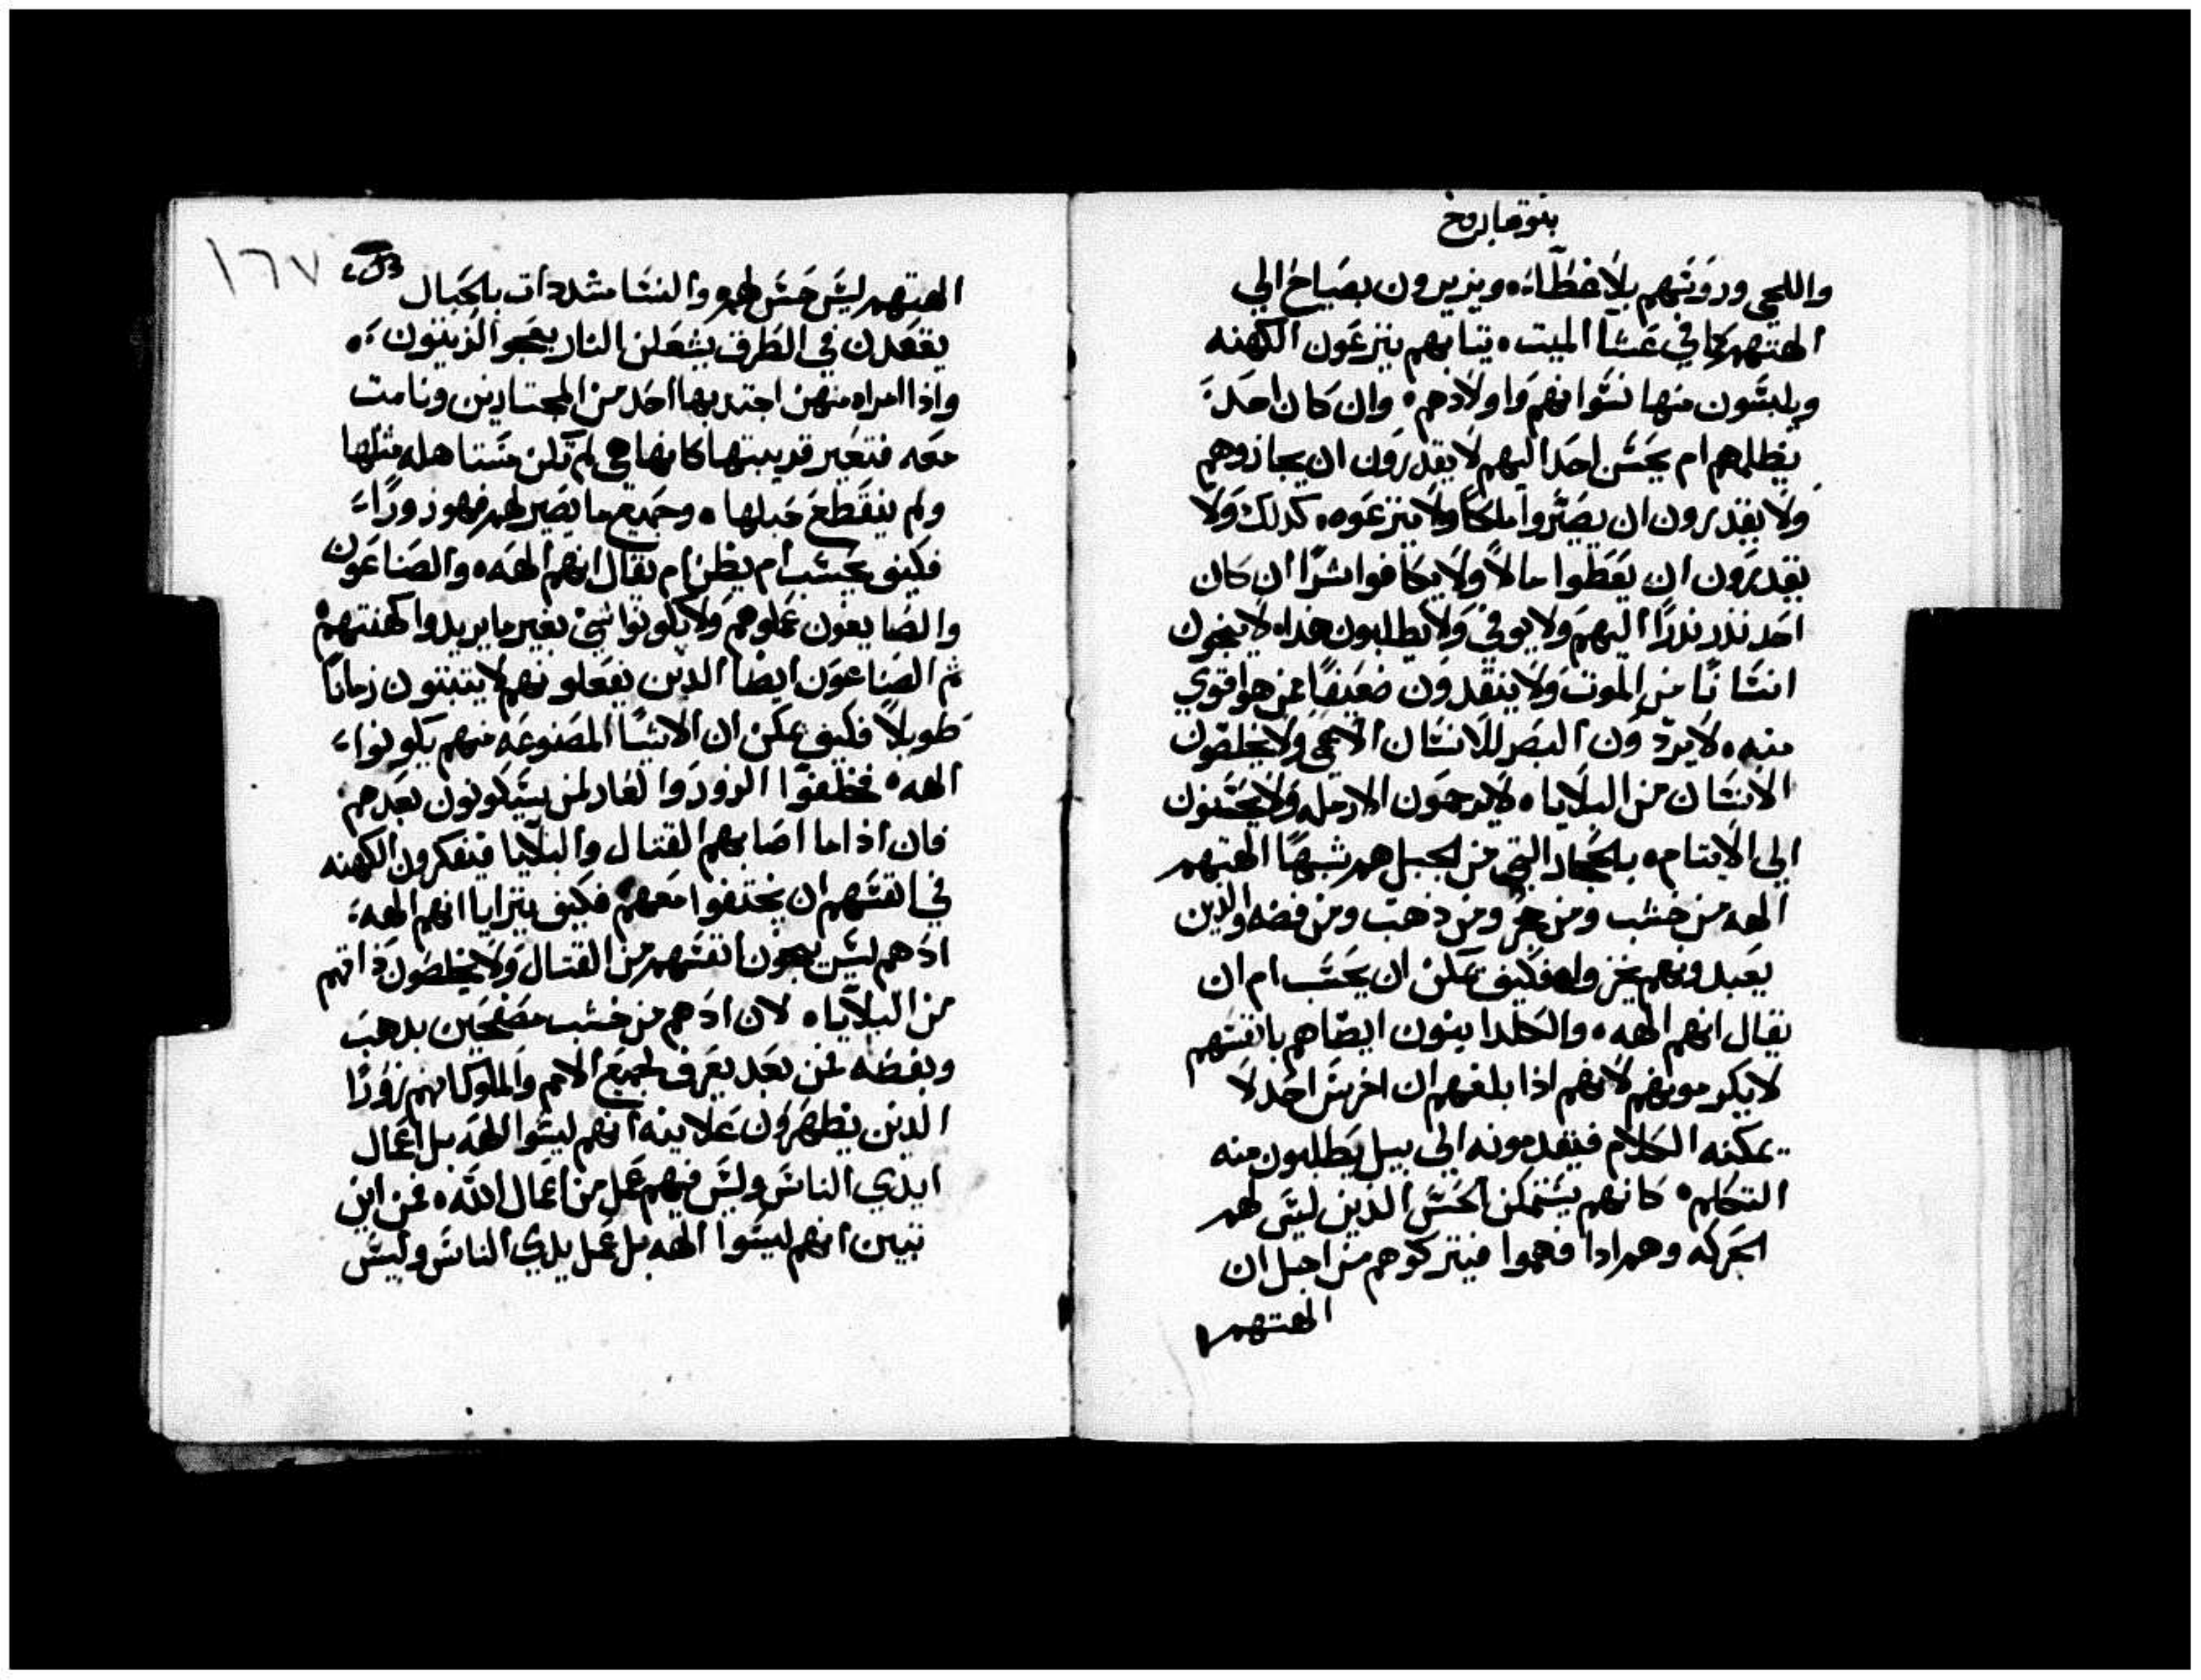 بنوة باروخ
واللحي وروستهم بلا غطاء، ويزيرون بصياح الي
الهتهم كما في عشا الميت، تيابهم ينزعون الكهنه
ويلبسون منها نسوانهم واولادهم، وان كان احد
يظلمهم ام يحسن احد اليهم لا يقدرون ان يجازوهم
ولا يقدرون ان يصيروا ملكاً ولا ينزعوه، كدلك ولا
يقدرون ان يعطوا مالاً ولا يكافوا شراً ان كان
احد نذر نذراً اليهم ولا يوفي ولا يطلبون هدا، لا ينجون
انساناً من الموت ولا ينقدون ضعيفاً عن هو اقوي
منه، لا يردون البصر للانسان الاعمي ولا يخلصون
الانسان من البلايا، لا يرحمون الارمله ولا يحسنون
الي الايتام، بلحجار التي من الجبل هم شبهاً الهتهم
الهه من خشب ومن حجر ومن ذهب ومن فضه والدين
يعبدونهم يخزوا، فكيف يمكن ان يحسب ام ان
يقال انهم الهه، والكلدانيون ايضاً هم بانفسهم
لا يكرمونهم لانهم اذا بلغهم ان اخرس احد لا
يمكنه الكلام فيقدمونه الي بيل يطلبون منه
التكلم، كانهم يستمكن الحس الذين ليس لهم
الحركه وهم ادا فهموا فيتركوهم من اجل ان
الهتهم
١٦٧
الهتهم ليس حس لهم، والنسا مشددات بالحبال
يقعدن في الطرق يشعلن النار بعجو الزيتون،
واذا امراه منهن اجتدبها احد من المجتازين ونامت
معه فتعير قريبتها كانها هي لم تكن مستاهله مثلها
ولم ينقطع حبلها، وجميع ما يصير لهم فهو زوراً،
فكيف يحسب ام يظن ام يقال انهم الهه، والصناعون
والصايغون عملوهم ولا يكونوا شي بغير ما يريدوا كهنتهم
ثم الصناعون ايضاً الدين يفعلونهم لا يتبتون زماناً
طويلاً فكيف يمكن ان الاشيا المصنوعه منهم يكونوا
الهه، فخلفوا الزور والعار لمن سيكونون بعدهم
فان اذا ما اصابهم القتال والبلايا فيفكرون الكهنه
في انفسهم ان يختفوا معهم، فكيف يترايا انهم الهه،
اذ هم ليس ينجون انفسهم من القتال ولا يخلصون ذاتهم
من البلايا، لان اذ هم من خشب مصفحين بدهب
وبفضه فمن بعد يعرف لجميع الامم والملوك انهم زوراً
الدين يظهرون علانيه انهم ليسوا الهه بل اعمال
ايدي الناس وليس فيهم عمل من اعمال الله، فمن اين
تبين انهم ليسوا الهه بل عمل يدي الناس وليس